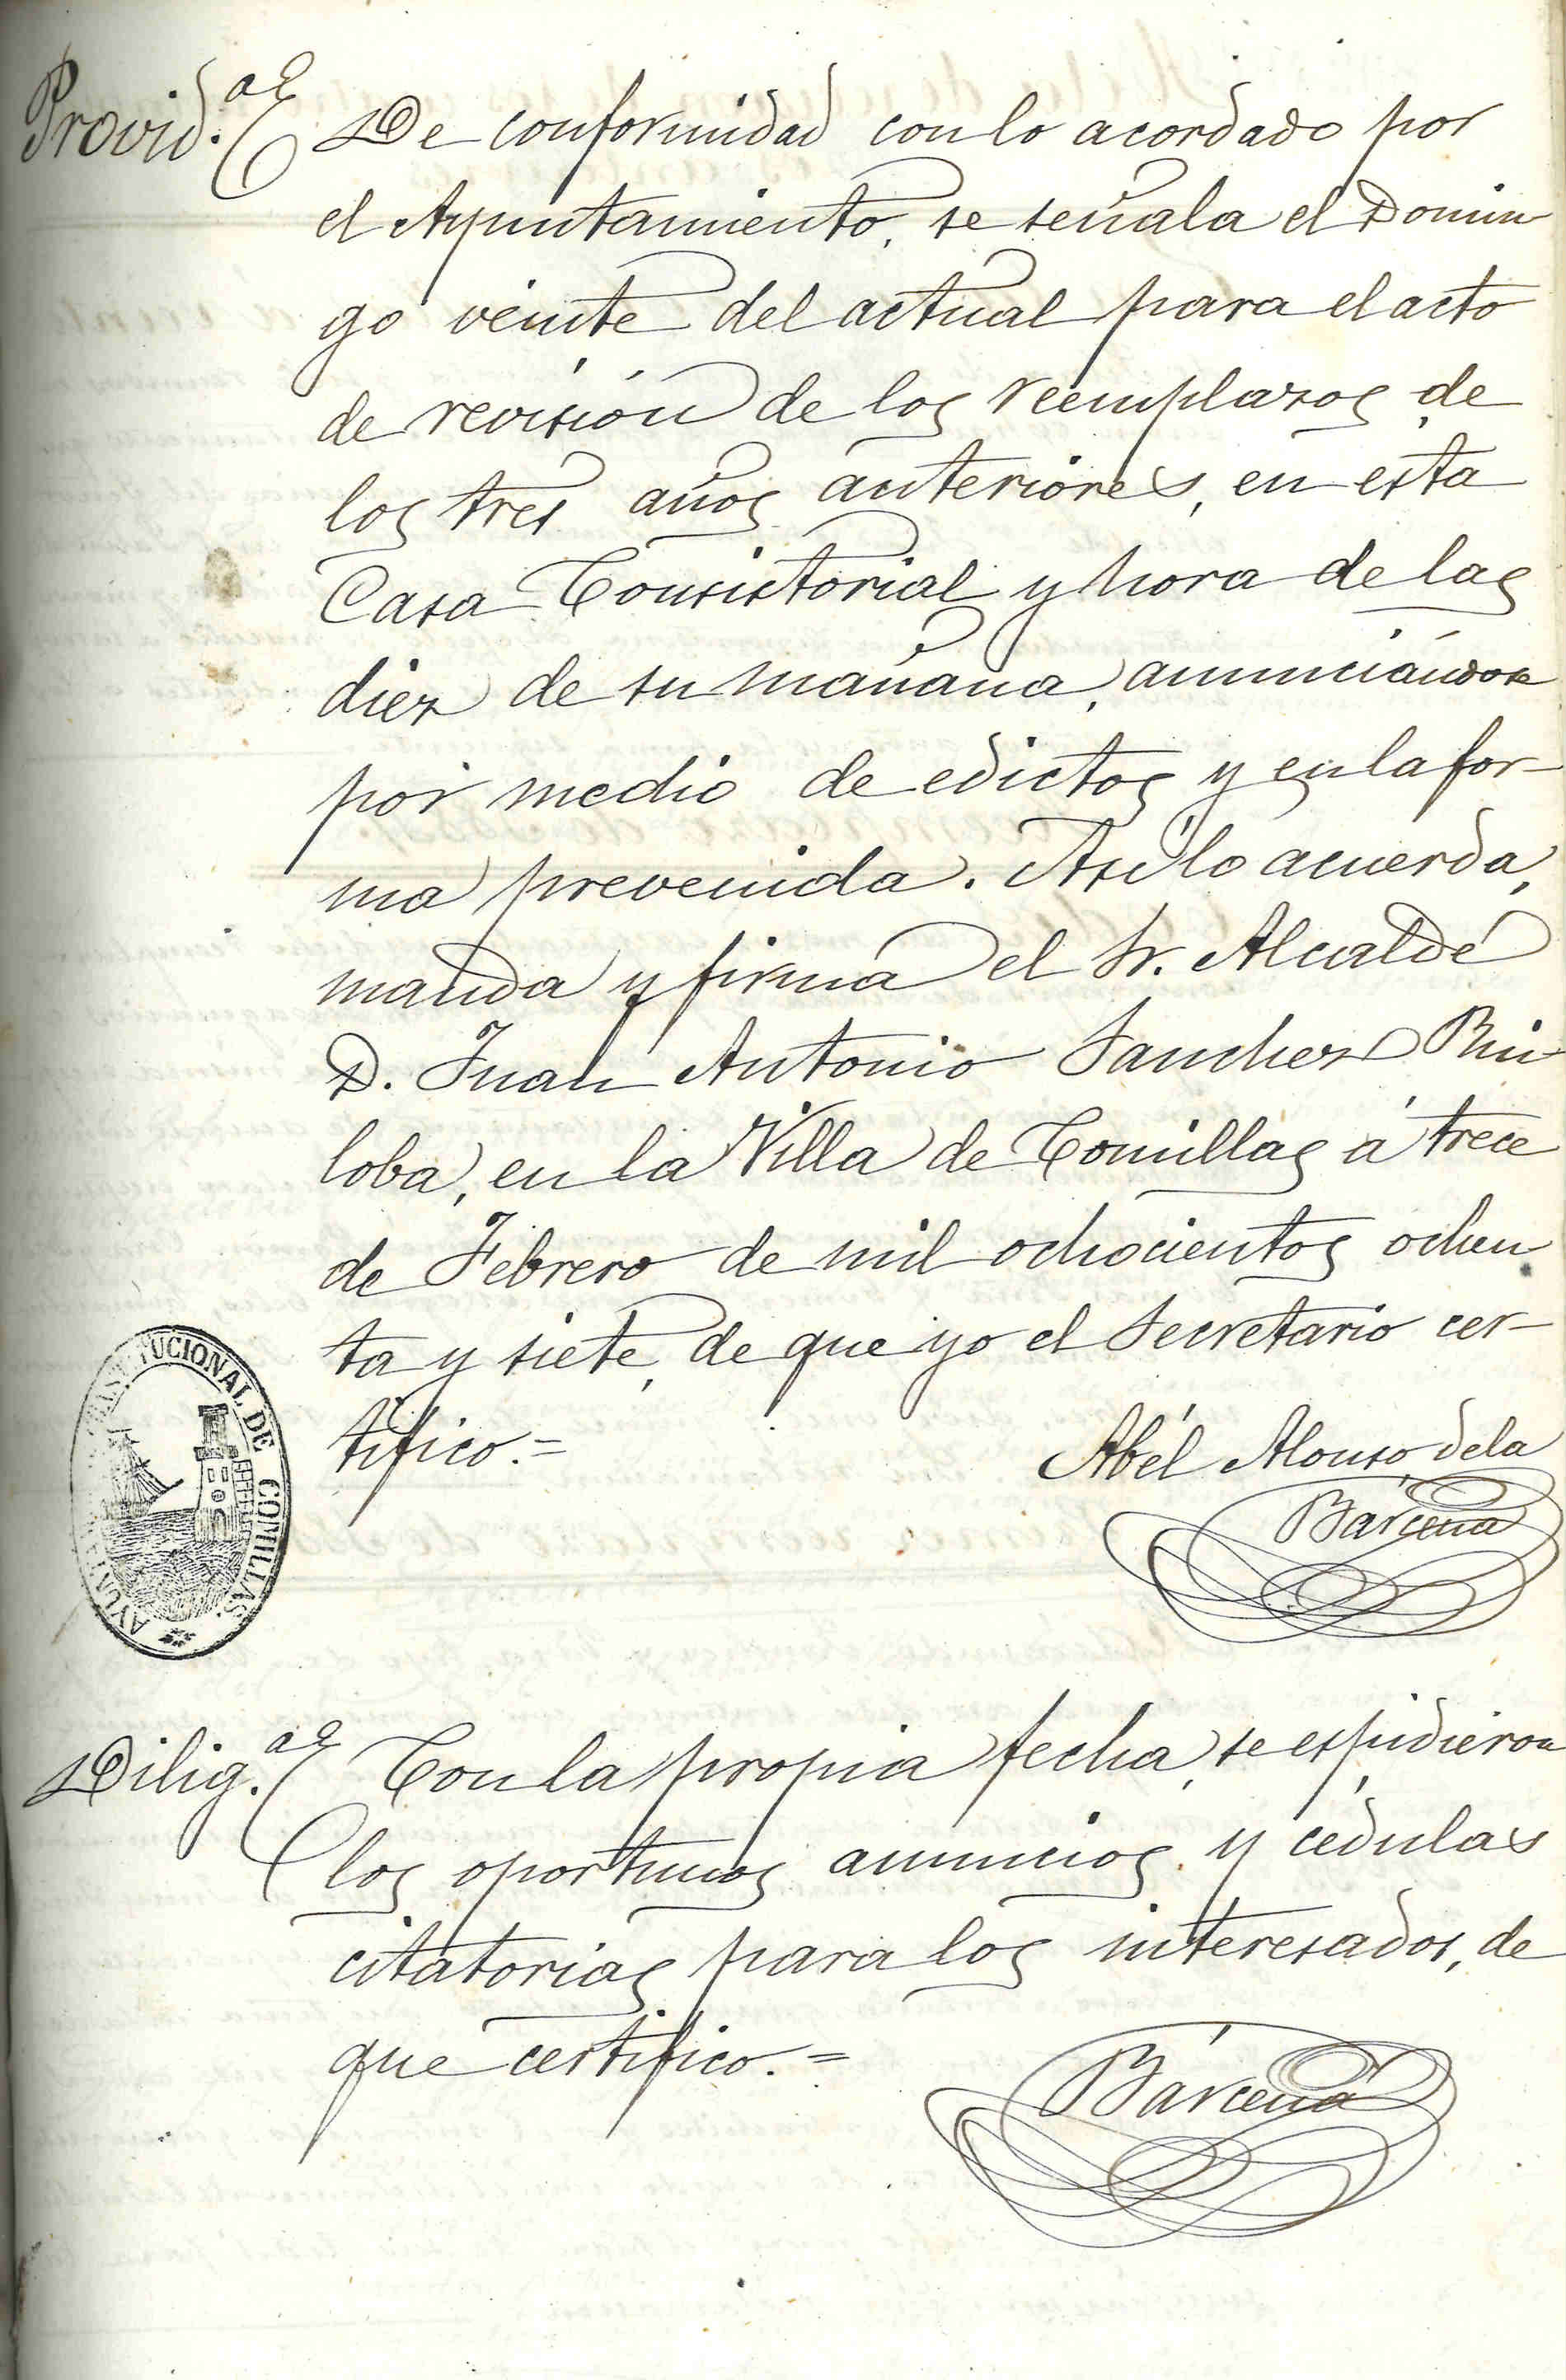 Provid.ª De conformidad con lo acordado por
el Ayuntamiento, se señala el Domin-
go veinte del actual para el acto
de revisión de los reemplazos de
los tres años anteriores, en esta
Casa Consistorial y hora de las
diez de su mañana, anunciándose
por medio de edictos y en la for-
ma prevenida. Asi lo acuerda,
manda y firma el Sr. Alcalde
D. Juan Antonio Sanchez Rui-
loba, en la Villa de Comillas á trece
de Febrero de mil ochocientos ochen-
ta y siete, de que yo el Secretario cer-
tifico.=
Abél Alonso de la
Bárcena
TUCIONAL DE COMILLAS
Dilig.ª Con la propia fecha, se espidieron
los oportunos anuncios y cédulas
citatorias para los interesados, de
que certifico.=
Bárcena